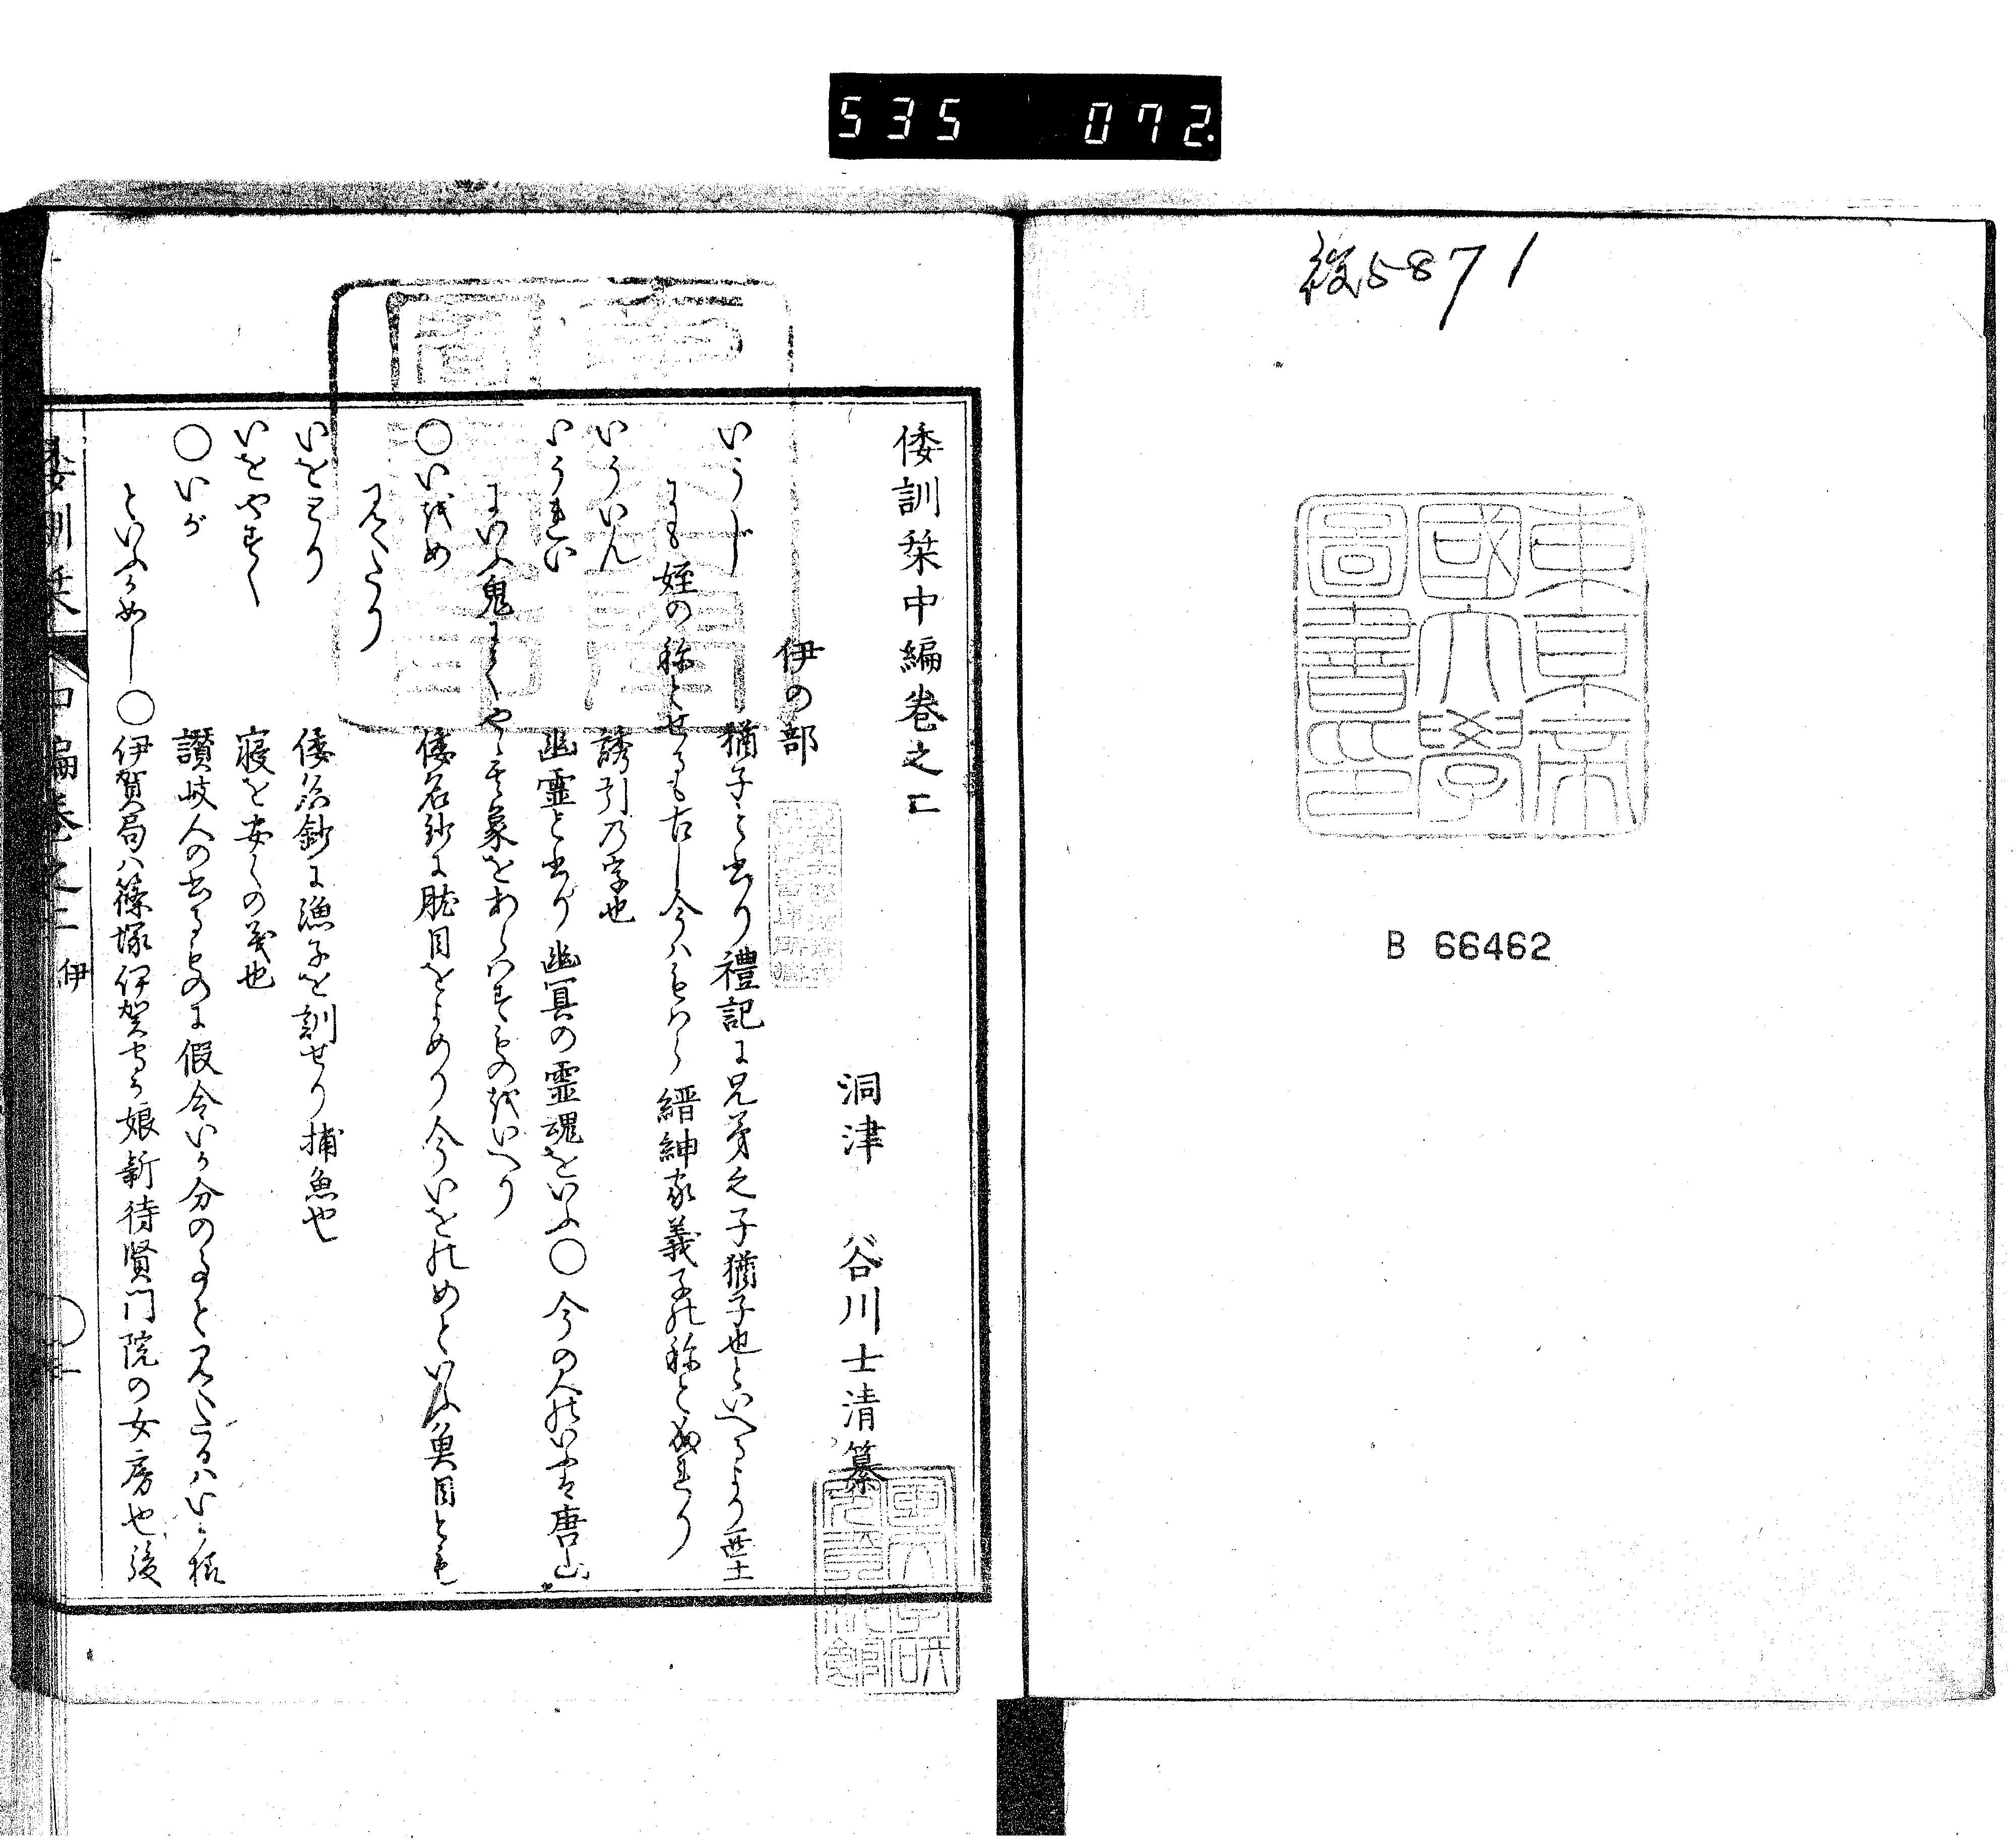 535 072.
役5871
東京帝
國大學
圖書印
B 66462
倭訓栞中編卷之二
洞津 谷川士清纂
伊の部
いうじ 猶子と書り禮記に兄弟之子猶子也といへるより無土
にも姪の称とせるも古し今ハもはら縉紳家義子の称となれり
いういん 誘引乃字也
いうれい 幽霊と書り幽冥の霊魂をいふ〇今の人のいふは唐山
にいふ鬼にてやゝ其象をあらハすものをいへり
〇いをめ 倭名鈔に肬目をよめり今いをのめといふ魚目とも
見えたり
いをとり 倭名鈔に漁子を訓せり捕魚也
いをやすく 寝を安くの義也
〇いが 讃岐人の書るものに假令いか分のるとも見えたるハいか様
といふか如し〇伊賀局ハ篠塚伊賀守か娘新待賢門院の女房也後
倭訓栞 中編卷之二 伊 一